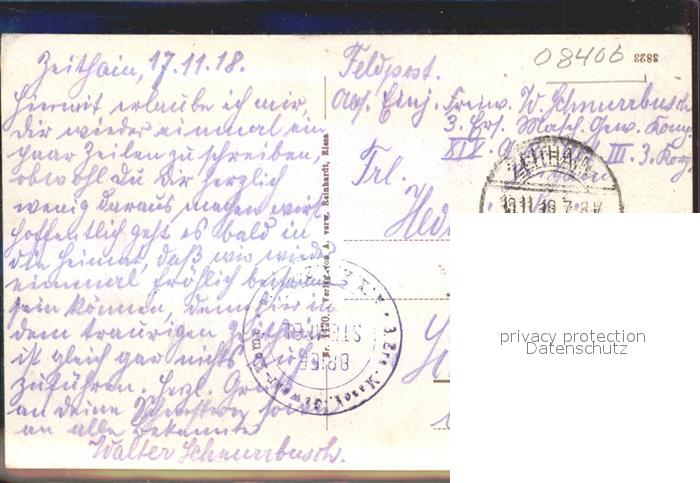 Zeithain, 17.11.18.
Hiermit erlaube ich mir,
Dir wieder einmal ein
paar Zeilen zu schreiben,
obwohl Du Dir herzlich
wenig daraus machen wirst.
Hoffentlich geht es bald in
die Heimat, daß wir wieder
einmal fröhlich beisammen
sein können, denn hier in
dem traurigen Zeithain
ist gleich gar nichts
zuführen. Herzl. Grüße
an Deine Schwestern
an alle Bekannte
Walter Schnurrbusch.
Nr. 1420. Verlag von A. verw. Reinhardt, Riesa
Feldpost.
Abs. Einj. Freiw. W. Schnurrbusch
3. Ers. Masch. Gew. Komp.
XIX. III. 3. Korp.
Frl.
08406
3823
ZEITHAIN
3. Ers. Masch. Gewehr-Komp.
BRIEF
STEMPEL
privacy protection
Datenschutz